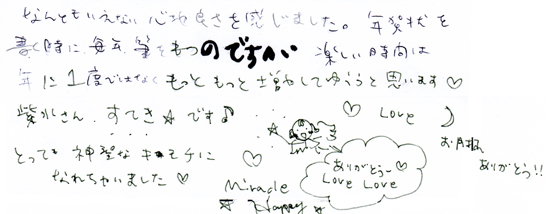 なんともいえない 心地良さを感じました。 年賀状を
書く時に 毎年 筆をもつのですが 楽しい時間は
年に1度ではなく もっと もっと 増やしてゆこうと思います♡
紫水さん、すてき☆です♪
とっても 神聖な キモチに
なれちゃいました♡
♡ Love
お月様
ありがとう!!
ありがとう〜♡
Love Love
Miracle
☆ Happy ☆